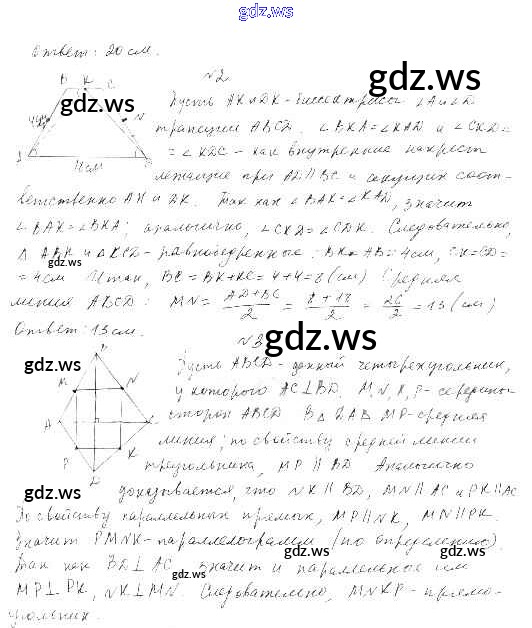 gdz.ws
Ответ: 20 см.
№2
gdz.ws
B K C
Пусть АК и DK - биссектрисы ∠A и ∠D
N
трапеции ABCD. ∠BKA = ∠KAD и ∠CKD =
= ∠KDC - как внутренние накрест
лежащие при AD || BC и секущих соот-
ветственно АК и DK. Так как ∠BAK = ∠KAD, значит
∠BAK = ∠BKA; аналогично, ∠CKD = ∠CDK. Следовательно,
△ ABK и △KCD - равнобедренные: BK = AB = 4см, CK = CD =
= 4см Итак, BC = BK + KC = 4 + 4 = 8 (см) Средняя
линия ABCD: MN = AD+BC/2 = 8+18/2 = 26/2 = 13 (см)
Ответ: 13 см.
№3
gdz.ws
gdz.ws
B
Пусть ABCD - данный четырехугольник,
M N
у которого AC⊥BD. M, N, K, P - середины
A
сторон ABCD В △ DAB MP - средняя
линия; по свойству средней линии
P K
треугольника, MP || BD Аналогично
D
gdz.ws
доказывается, что NK || BD, MN || AC и PK || AC
По свойству параллельных прямых, MP || NK, MN || PK.
Значит PMNK - параллелограмм (по определению).
gdz.ws
gdz.ws
Так как BD⊥AC, значит и параллельные им
MP⊥PK, NK⊥MN. Следовательно, MNKP - прямо-
gdz.ws
угольник.